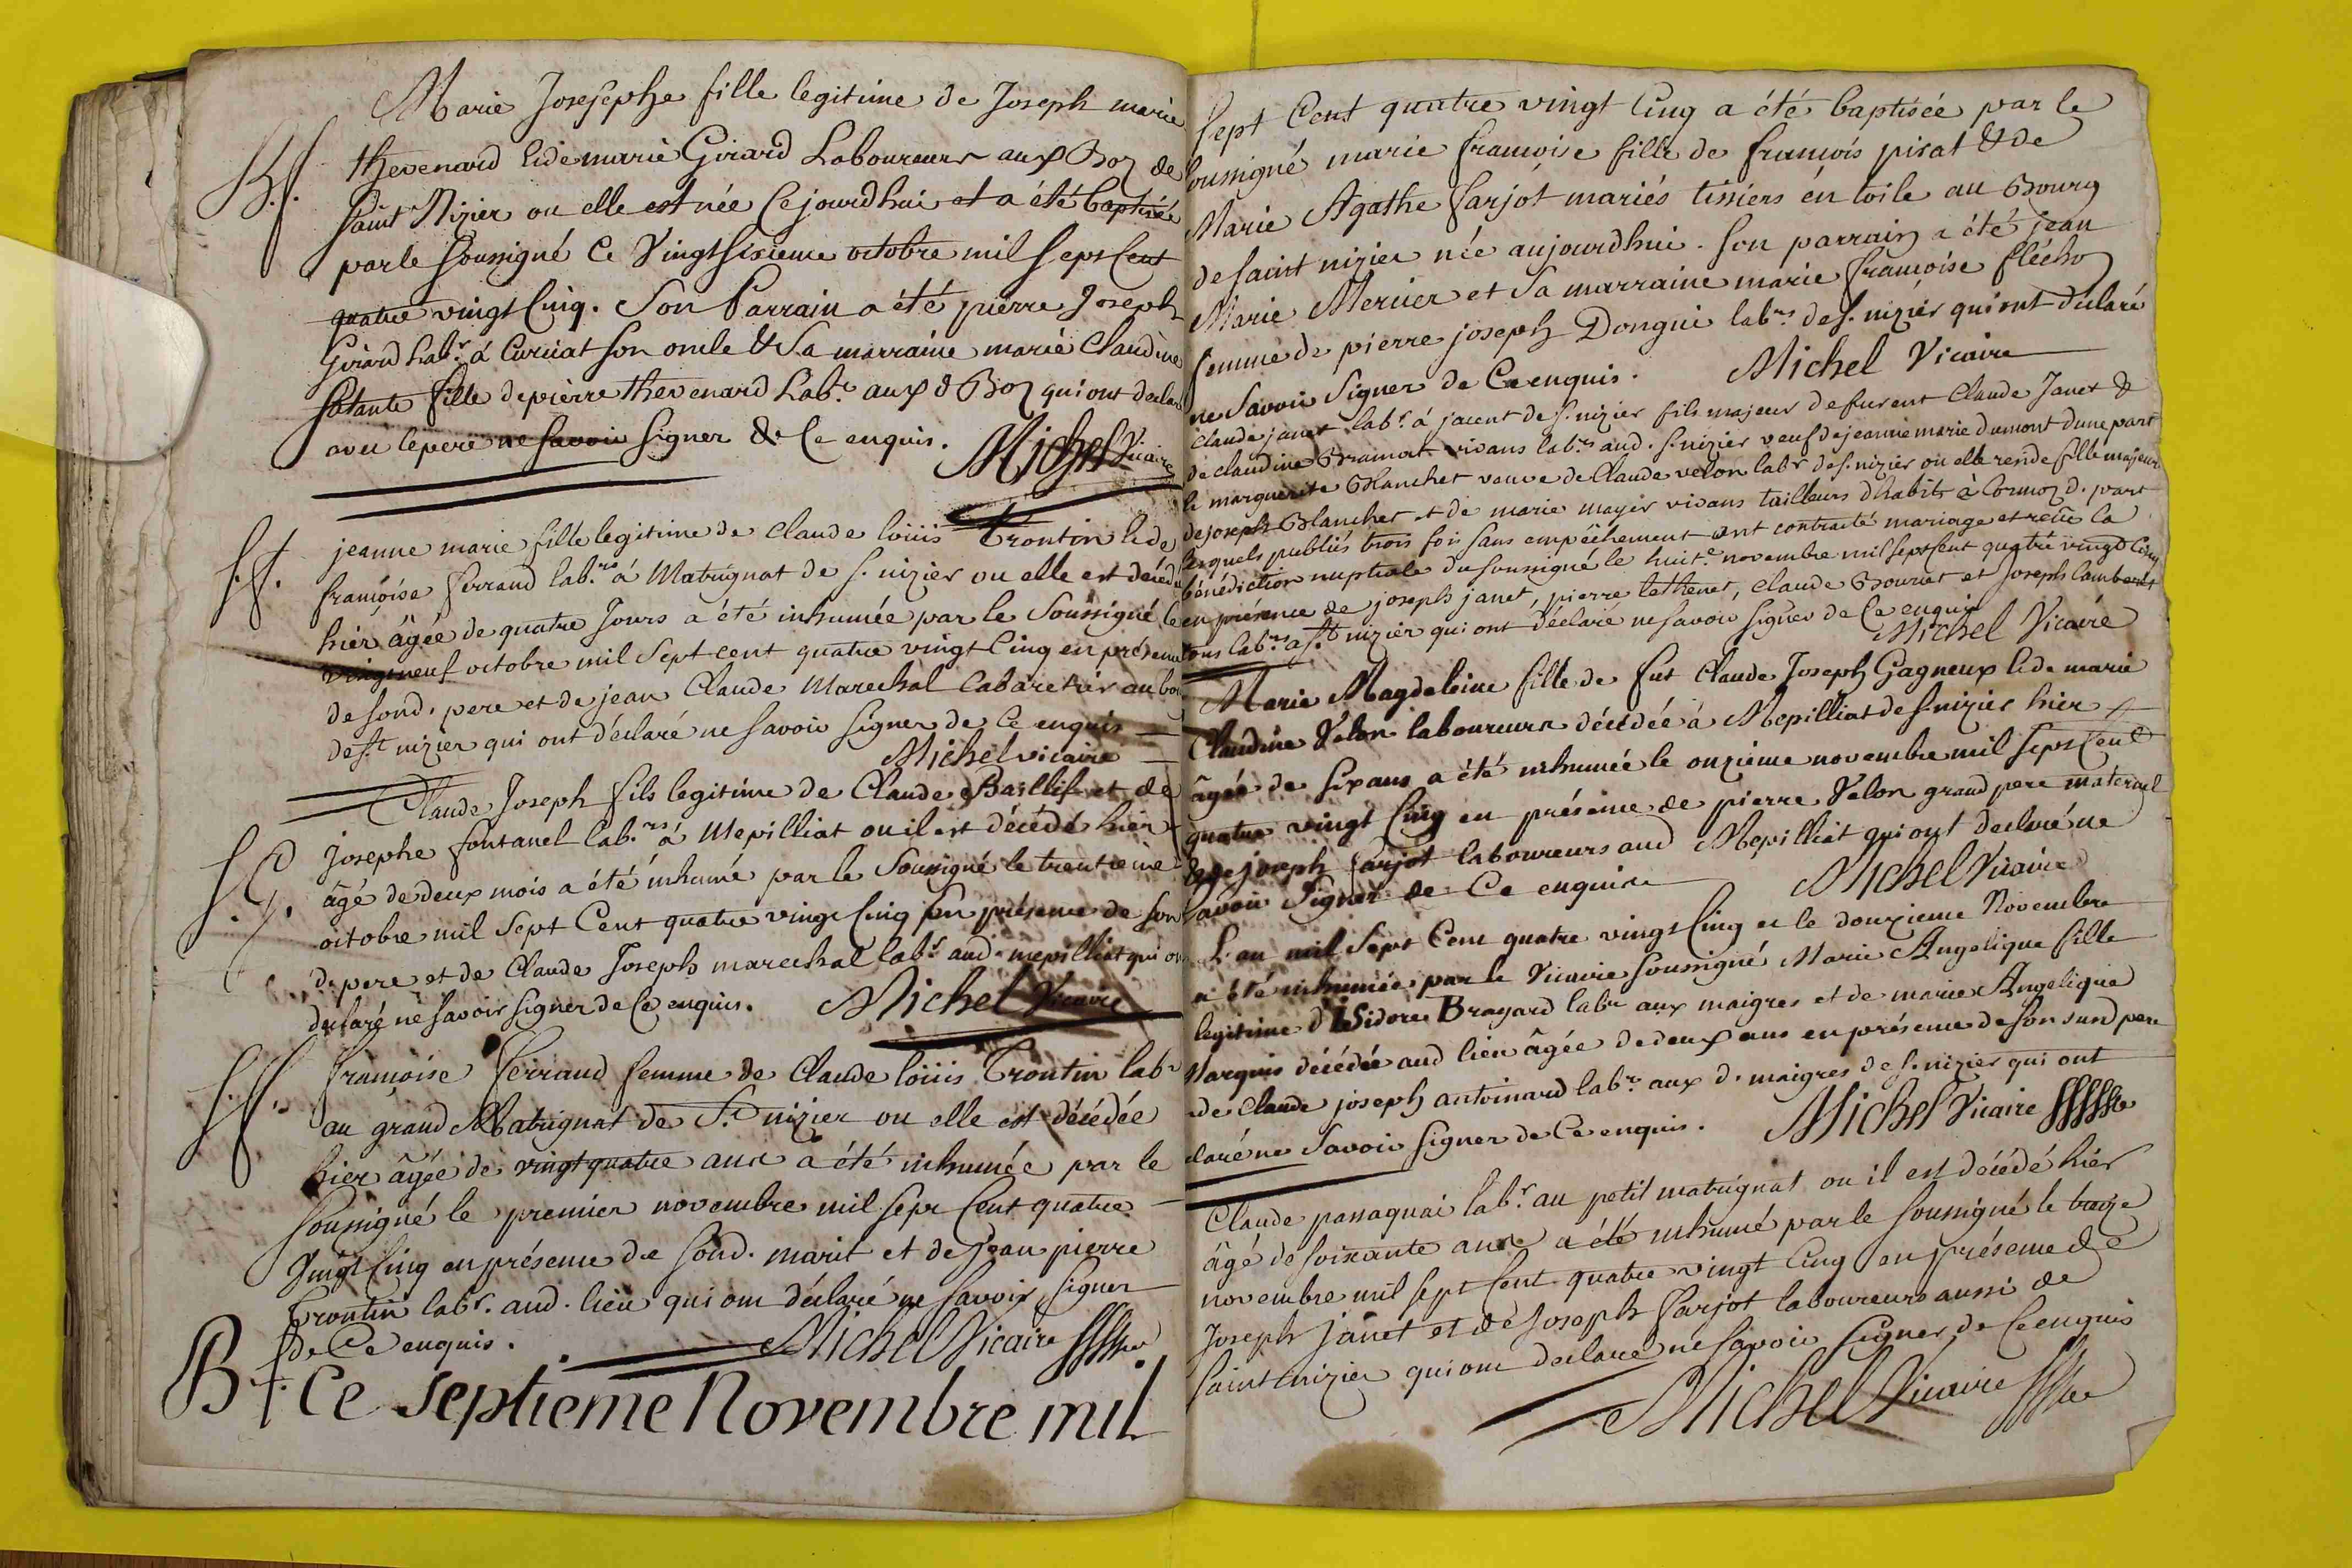 Marie Josesephe fille legitime de Joseph marie
B.f. thevenard & de marie Girard Laboureurs aux Boz de
saint Nizier ou elle est née Cejourdhui et a été baptisée
par le soussigné Ce Vingt sixieme octobre mil sept Cent
quatre vingt Cinq. Son Parrain a été pierre Joseph
Girard Lab.r á Curciat son oncle & Sa marraine marie Claudine
sa tante fille de pierre thevenard Lab.r aux d Boz qui ont declaré
avec le pere ne savoir signer de Ce enquis. Michel Vicaire
S.f. jeanne marie fille legitime de claude loüis Trontin & de
françoise ferrand lab.rs á Matrignat de s. nizier ou elle est décédée
hier âgée de quatre Jours a été inhumée par le Soussigné le
vingt neuf octobre mil Sept cent quatre vingt Cinq en présence
de sond. pere et de jean Claude Marechal Cabaretier au bourg
de s.t nizier qui ont déclaré ne savoir signer de Ce enquis
Michel vicaire
Claude Joseph fils legitime de Claude Baillif et de
S.G. Josephe fontanel lab.rs á Mepilliat ou il est décédé hier
âgé de deux mois a été inhumé par le Soussigné le trentieme
octobre mil Sept Cent quatre vingt Cinq En présence de Son
d. pere et de Claude Joseph marechal lab.r aud. mepilliat qui ont
declaré ne savoir signer de Ce enquis. Michel Vicaire
S.f. françoise ferrand femme de Claude loüis Trontin lab.r
au grand Matrignat de S.t nizier ou elle est décédée
hier âgée de vingt quatre ans a été inhumée par le
Soussigné le premier novembre mil sept Cent quatre
Vingt Cinq en présence de sond. marit et de Jean pierre
Trontin lab.r. aud. lieu qui ont déclaré ne savoir signer
de Ce enquis. Michel Vicaire
B f. Ce septieme Novembre mil
sept Cent quatre vingt Cinq a été baptisée par le
soussigné marie françoise fille de françois pirat & de
Marie Agathe farjot mariés tissiers en toile au Bourg
de saint nizier née aujourdhui. son parrain a été jean
Marie Mercier et Sa marraine marie françoise fléchon
femme de pierre joseph Donguï lab.rs de s. nizier qui ont déclaré
ne Savoir Signer de Ce enquis. Michel Vicaire
Claude janet lab.r á jacent de s. nizier fils majeur de furent Claude Janet &
de claudine Bramat vivans lab.rs aud. s. nizier veuf de jeanne marie dumont dune part
& marguerite Blanchet veuve de Claude velon lab.r de s. nizier ou elle reside fille majeure
de joseph Blanchet et de marie mayer vivans tailleurs dhabits à Cormoz d. part
lesquels publiés trois fois sans empêchement ont contracté mariage et reçu la
bénédiction nuptiale du soussigné le huit.e novembre mil sept Cent quatre vingt Cinq
en présence de joseph janet, pierre lethenet, claude Bourcet et joseph Cambaret
tous lab.rs a s.t nizier qui ont déclaré ne savoir signer de Ce enquis
Michel Vicaire
Marie Magdeleine fille de fut Claude Joseph Gagneux & de marie
Claudine Velon laboureurs décédée á Mepilliat de s. nizier hier
âgée de six ans a été inhumée le onzieme novembre mil sept Cent
quatre vingt Cinq en présence de pierre Velon grand pere maternel
& de joseph farjot laboureurs aud Mepilliat qui ont declaré ne
savoir Signer de Ce enquis Michel Vicaire
L'an mil Sept Cent quatre vingt Cinq et le douzieme Novembre
a été inhumée par le Vicaire soussigné Marie Angelique fille
legitime d'Isidore Brayard lab.r aux maigres et de marie Angelique
Marquis décédée aud lieu âgée de deux ans en présence de son susd pere
de claude joseph antoinard lab.r aux d. maigres de s. nizier qui ont
claré ne savoir signer de Ce enquis. Michel Vicaire
Claude passaquai lab.r au petit matrignat ou il est décédé hier
âgé de soixante ans a été inhumé par le soussigné le treize
novembre mil sept Cent quatre vingt Cinq en présence de
Joseph Janet et de Joseph Farjot laboureurs aussi de
saint nizier qui ont declaré ne savoir Signer de Ce enquis
Michel Vicaire